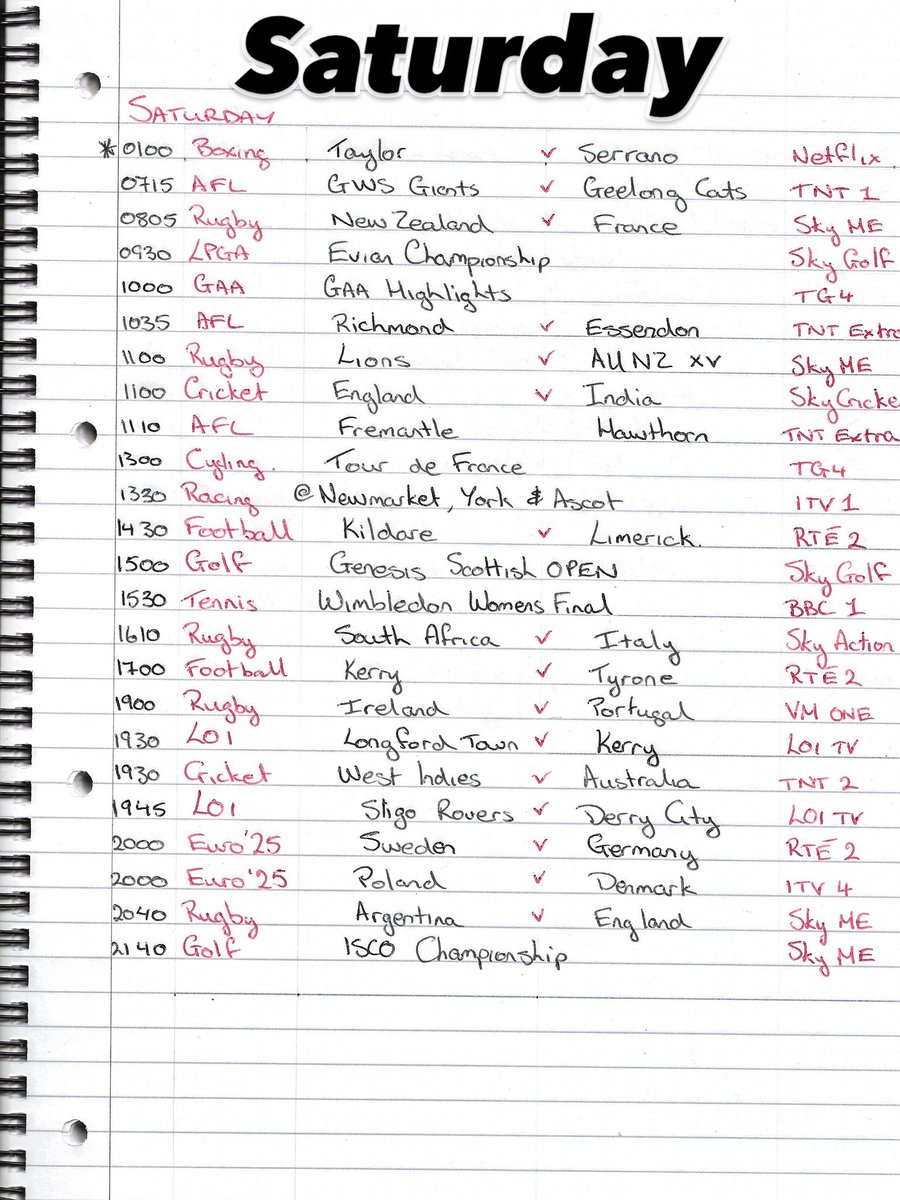 Saturday
SATURDAY
*0100 Boxing Taylor v Serrano Netflix
0715 AFL GWS Giants v Geelong Cats TNT 1
0805 Rugby New Zealand v France Sky ME
0930 LPGA Evian Championship Sky Golf
1000 GAA GAA Highlights TG4
1035 AFL Richmond v Essendon TNT Extra
1100 Rugby Lions v AUNZ XV Sky ME
1100 Cricket England v India Sky Cricke
1110 AFL Fremantle Hawthorn TNT Extra
1300 Cycling. Tour de France TG4
1330 Racing @ Newmarket, York & Ascot ITV 1
1430 Football Kildare v Limerick. RTÉ 2
1500 Golf Genesis Scottish OPEN Sky Golf
1530 Tennis Wimbledon Womens Final BBC 1
1610 Rugby South Africa v Italy Sky Action
1700 Football Kerry v Tyrone RTÉ 2
1900 Rugby Ireland v Portugal VM ONE
1930 LOI Longford Town v Kerry LOI TV
1930 Cricket West Indies v Australia TNT 2
1945 LOI Sligo Rovers v Derry City LOI TV
2000 Euro'25 Sweden v Germany RTÉ 2
2000 Euro'25 Poland v Denmark ITV 4
2040 Rugby Argentina v England Sky ME
2140 Golf ISCO Championship Sky ME